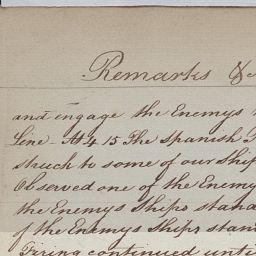 Remarks &
and engage the Enemys
Line - At 4.15 The Spanish
struck to some of our Ship
Observed one of the Enemy
the Enemys Ships stand
of the Enemys Ships stan
Firing continued unti